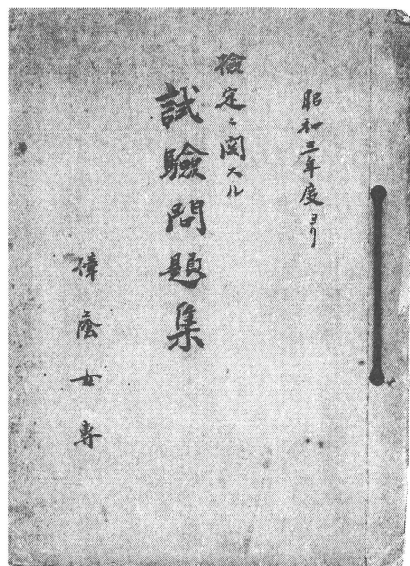 昭和三年度ヨリ
検定ニ関スル
試験問題集
樟蔭女専